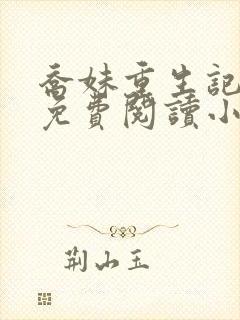 喬妹重生記
免費閱讀小
荆山玉